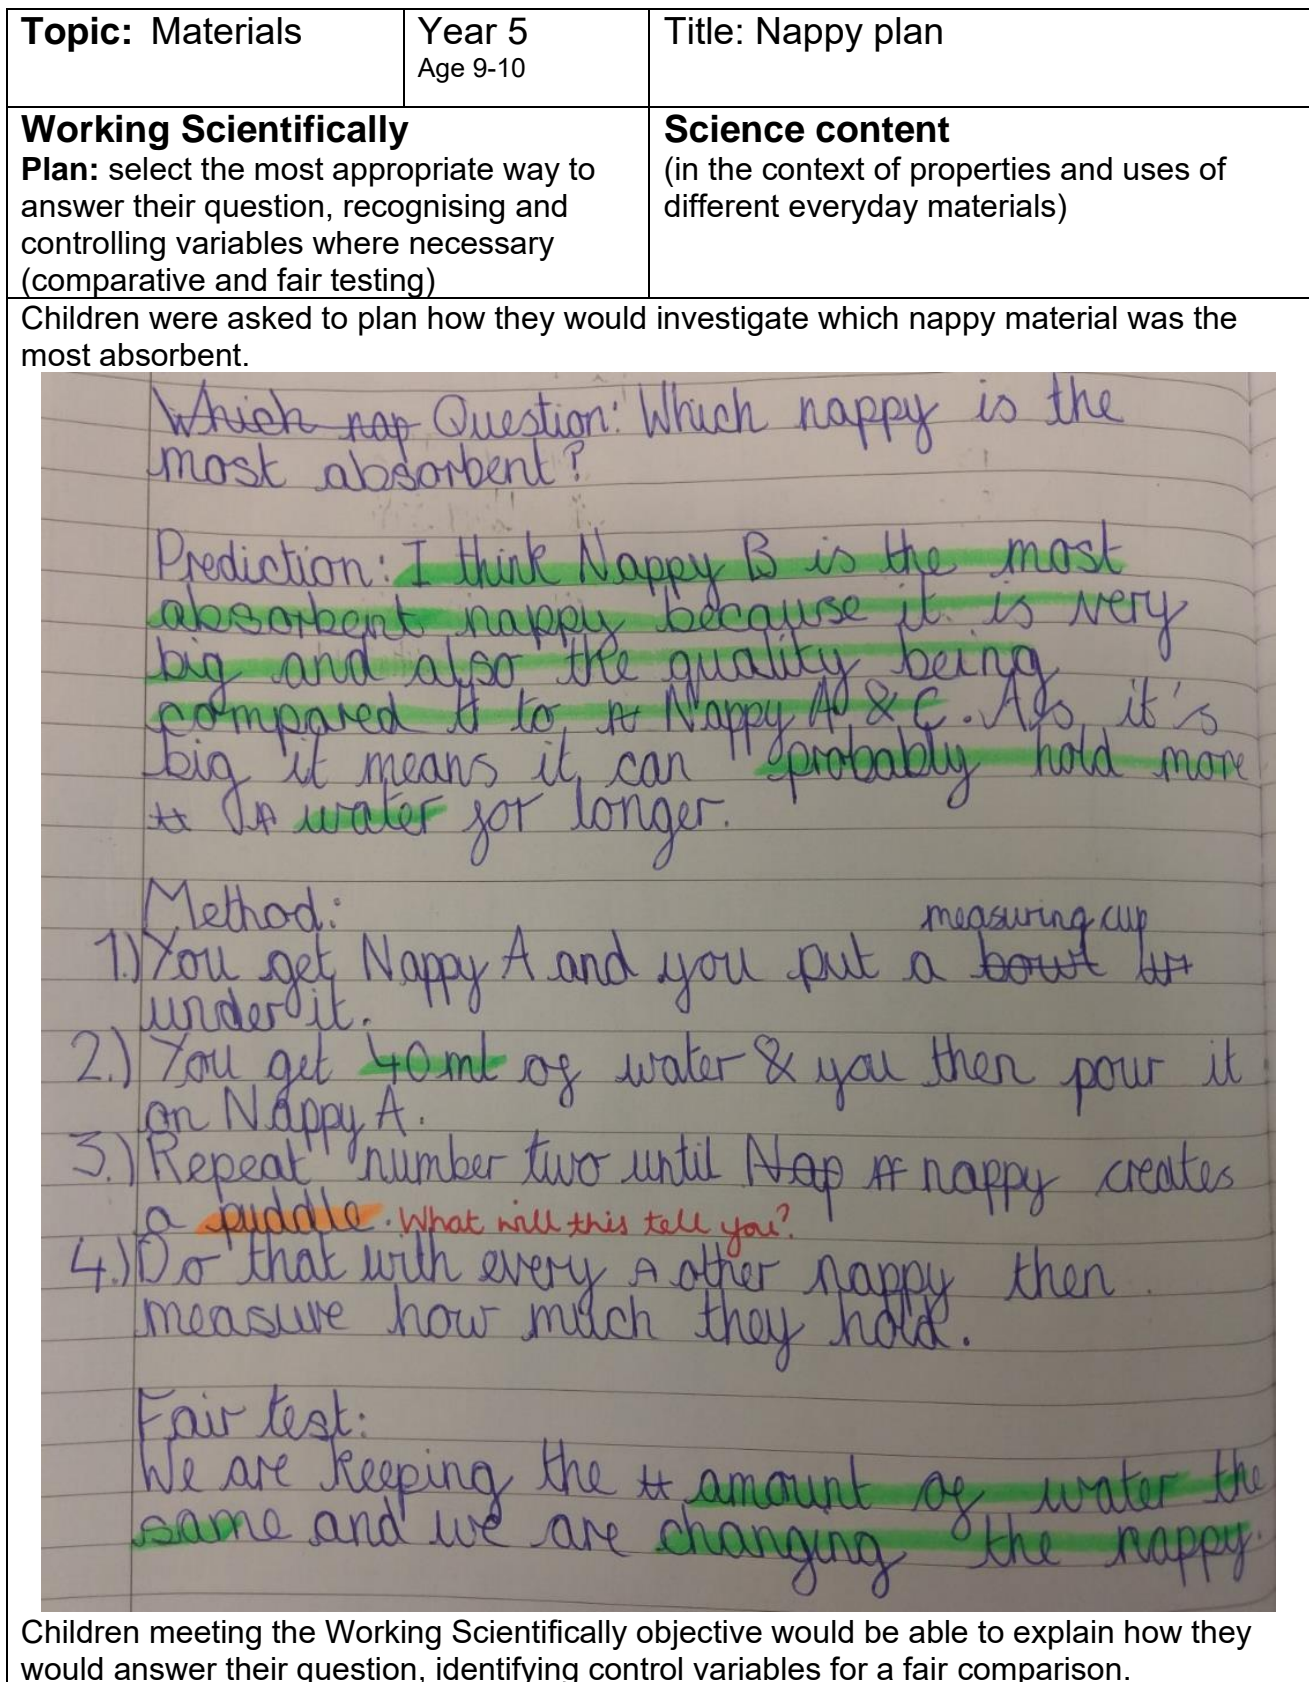 Topic: Materials
Year 5
Age 9-10
Title: Nappy plan
Working Scientifically
Plan: select the most appropriate way to
answer their question, recognising and
controlling variables where necessary
(comparative and fair testing)
Science content
(in the context of properties and uses of
different everyday materials)
Children were asked to plan how they would investigate which nappy material was the
most absorbent.
Which nap Question: Which nappy is the
most absorbent?
Prediction: I think Nappy B is the most
absorbent nappy because it is very
big and also the quality being
compared to Nappy A & C. As it's
big it means it can probably hold more
water for longer.
Method:
measuring cup
1.) You get Nappy A and you put a bowl
under it.
2.) You get 40ml of water & you then pour it
on Nappy A.
3.) Repeat number two until Nap nappy creates
a puddle. What will this tell you?
4.) Do that with every other nappy then
measure how much they hold.
Fair test:
We are keeping the amount of water the
same and we are changing the nappy.
Children meeting the Working Scientifically objective would be able to explain how they
would answer their question, identifying control variables for a fair comparison.